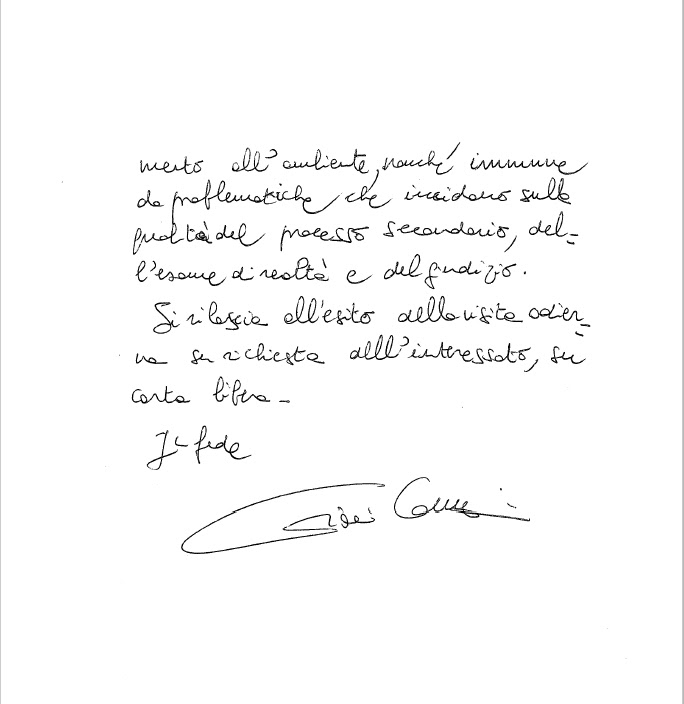 mento all'ambiente, nonché immune
da problematiche che incidano sulla
qualità del processo secondario, del-
l'esame di realtà e del giudizio.
Si rilascia all'esito della visita odier-
na su richiesta dell'interessato, su
carta libera -
In fede